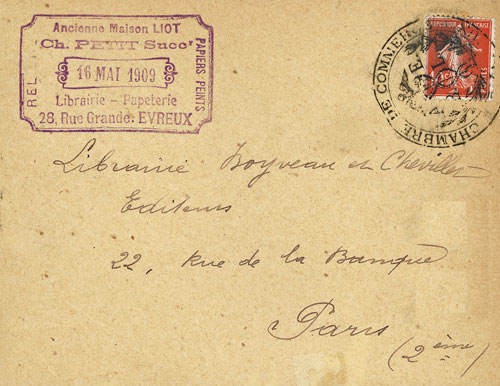 Ancienne Maison LIOT
Ch. PETIT Succr
16 MAI 1909
Librairie - Papeterie
28, Rue Grande. EVREUX
REL
PAPIERS PEINTS
CHAMBRE DE COMMER
Librairie Boyveau et Chevillet
Editeurs
22, Rue de la Banque
Paris
(2ème)